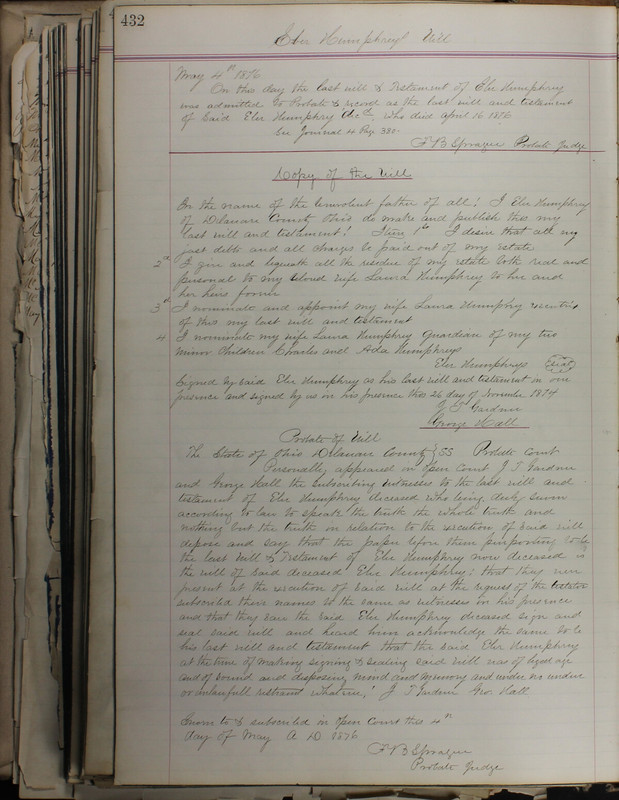 432
Eber Humphreys Will
May 4th 1876
On this day the last will & Testament of Eber Humphrey
was admitted to Probate & record as the last will and testament
of said Eber Humphrey decd, who died april 16 1876
See Journal 4 Page 380-
F B Sprague Probate Judge
Copy of the Will
In the name of the benevolent father of all! I Eber Humphrey
of Delaware County Ohio do make and publish this my
last will and testament! Item 1st I desire that all my
just debts and all charges be paid out of my estate
2d I give and bequeath all the residue of my estate both real and
personal to my beloved wife Laura Humphrey to her and
her heirs forever
3d I nominate and appoint my wife Laura Humphrey executrix
of this my last will and testament
4 I nominate my wife Laura Humphrey Guardian of my two
minor Children Charles and Ada Humphreys
Eber Humphreys seal
Signed by said Eber Humphrey as his last will and testament in our
presence and signed by us in his presence this 26 day of November 1874
J T Gardner
George Hall
Probate of Will
The State of Ohio Delaware County } SS Probate Court
Personally appeared in open Court J T Gardner
and George Hall the subscribing witnesses to the last will and
testament of Eber Humphrey deceased who being duly sworn
according to law to speak the truth the whole truth and
nothing but the truth in relation to the execution of said will
depose and say that the paper before them purporting to be
the last Will & Testament of Eber Humphrey now deceased is
the will of said deceased Eber Humphrey: that they were
present at the execution of said will at the request of the testator
subscribed their names to the same as witnesses in his presence
and that they saw the said Eber Humphrey deceased sign and
seal said will and heard him acknowledge the same to be
his last will and testament that the said Eber Humphrey
at the time of making signing & sealing said will was of legal age
and of sound and disposing mind and memory and under no undue
or unlawfull restraint whatever! J T Gardner Geo. Hall
Sworn to & subscribed in open Court this 4th
day of May A D 1876
F B Sprague
Probate Judge